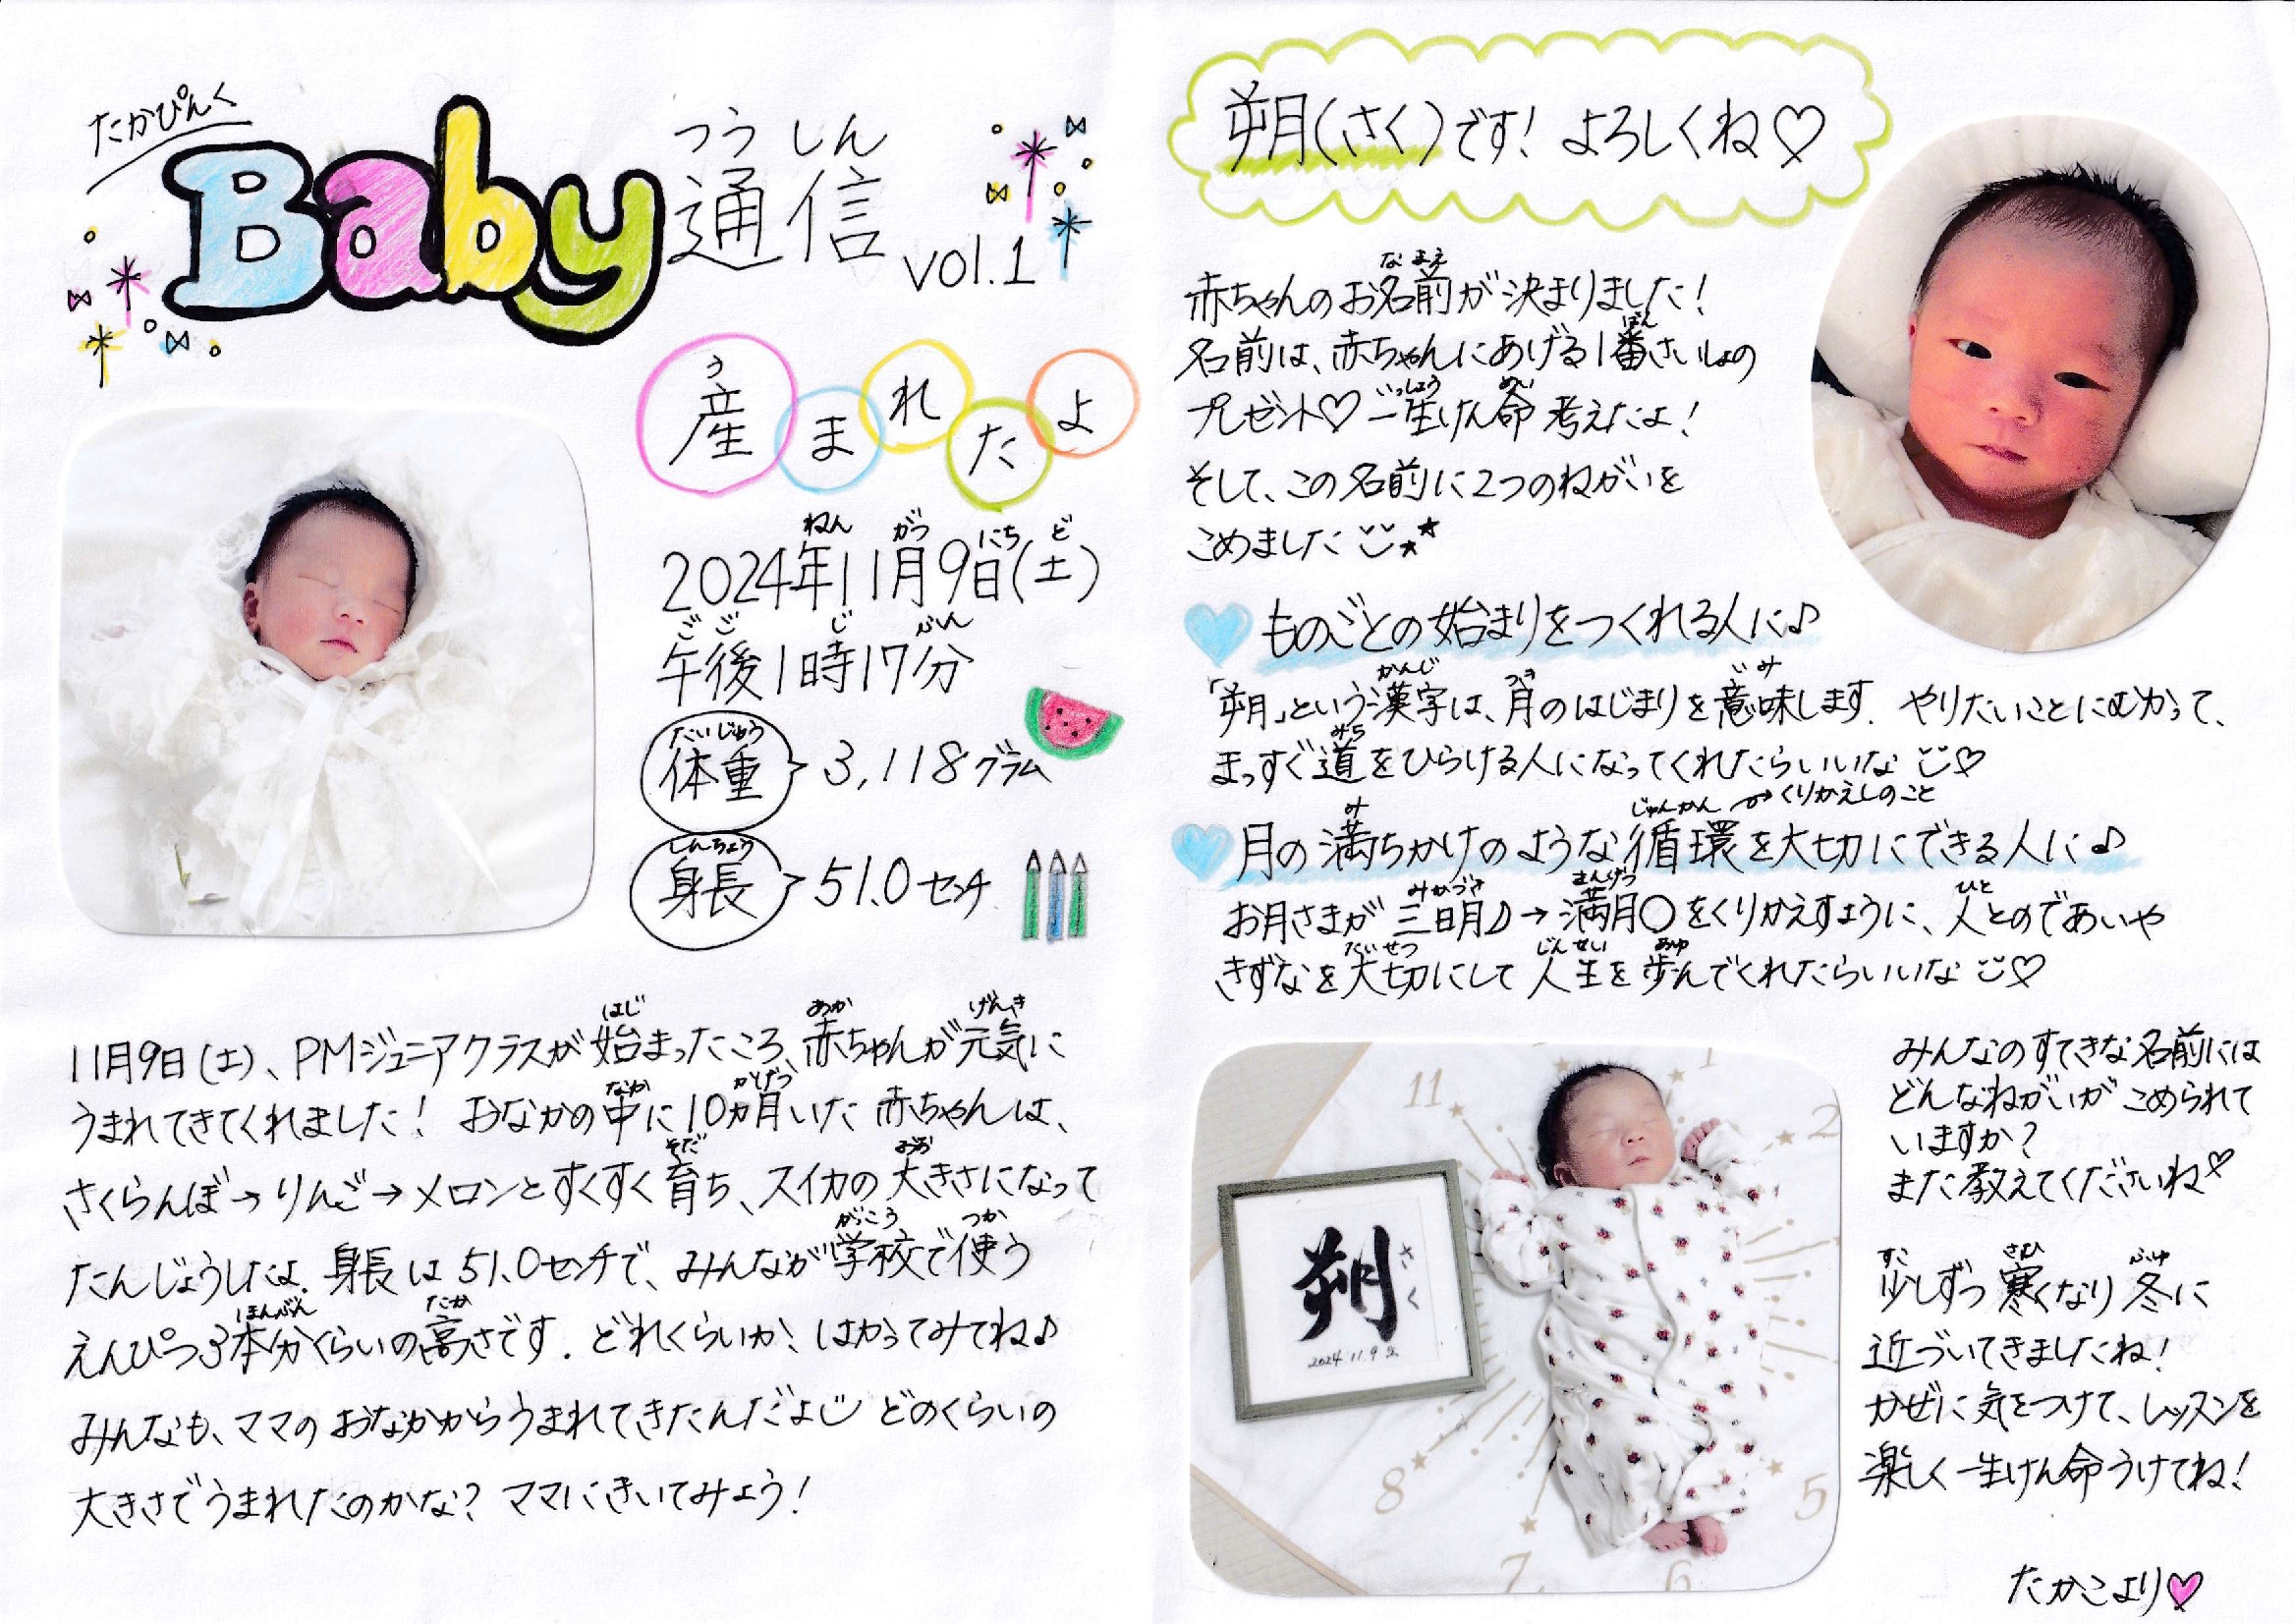 たかぴんく
Baby通信 vol.1
つうしん
産まれたよ
う
2024年11月9日(土)
ねん がつ にち ど
午後1時17分
ごご じ ふん
体重 3,118グラム
たいじゅう
身長 51.0センチ
しんちょう
11月9日(土)、PMジュニアクラスが始まったころ、赤ちゃんが元気に
はじ あか げんき
うまれてきてくれました! おなかの中に10ヵ月いた赤ちゃんは、
なか かげつ
さくらんぼ→りんご→メロンとすくすく育ち、スイカの大きさになって
そだ おお
たんじょうしたよ。身長は51.0センチで、みんなが学校で使う
がっこう つか
えんぴつ3本分くらいの高さです。どれくらいか、はかってみてね♪
ほんぶん たか
みんなも、ママのおなかからうまれてきたんだよ どのくらいの
大きさでうまれたのかな? ママにきいてみよう!
朔(さく)です! よろしくね♡
赤ちゃんのお名前が決まりました!
なまえ
名前は、赤ちゃんにあげる1番さいしょの
ばん
プレゼント♡ 一生けん命考えたよ!
いっしょう めい
そして、この名前に2つのねがいを
こめました
ものごとの始まりをつくれる人に♪
「朔」という漢字は、月のはじまりを意味します。やりたいことにむかって、
かんじ つき いみ
まっすぐ道をひらける人になってくれたらいいな♡
みち
月の満ちかけのような循環を大切にできる人に♪
み じゅんかん →くりかえしのこと
お月さまが三日月→満月○をくりかえすように、人とのであいや
みかづき まんげつ ひと
きずなを大切にして人生を歩んでくれたらいいな♡
たいせつ じんせい あゆ
みんなのすてきな名前には
どんなねがいがこめられて
いますか?
また教えてくださいね♡
少しずつ寒くなり冬に
すこ さむ ふゆ
近づいてきましたね!
かぜに気をつけて、レッスンを
楽しく一生けん命うけてね!
たかこより♡
朔
さく
2024.11.9生
11
1
2
5
6
7
8